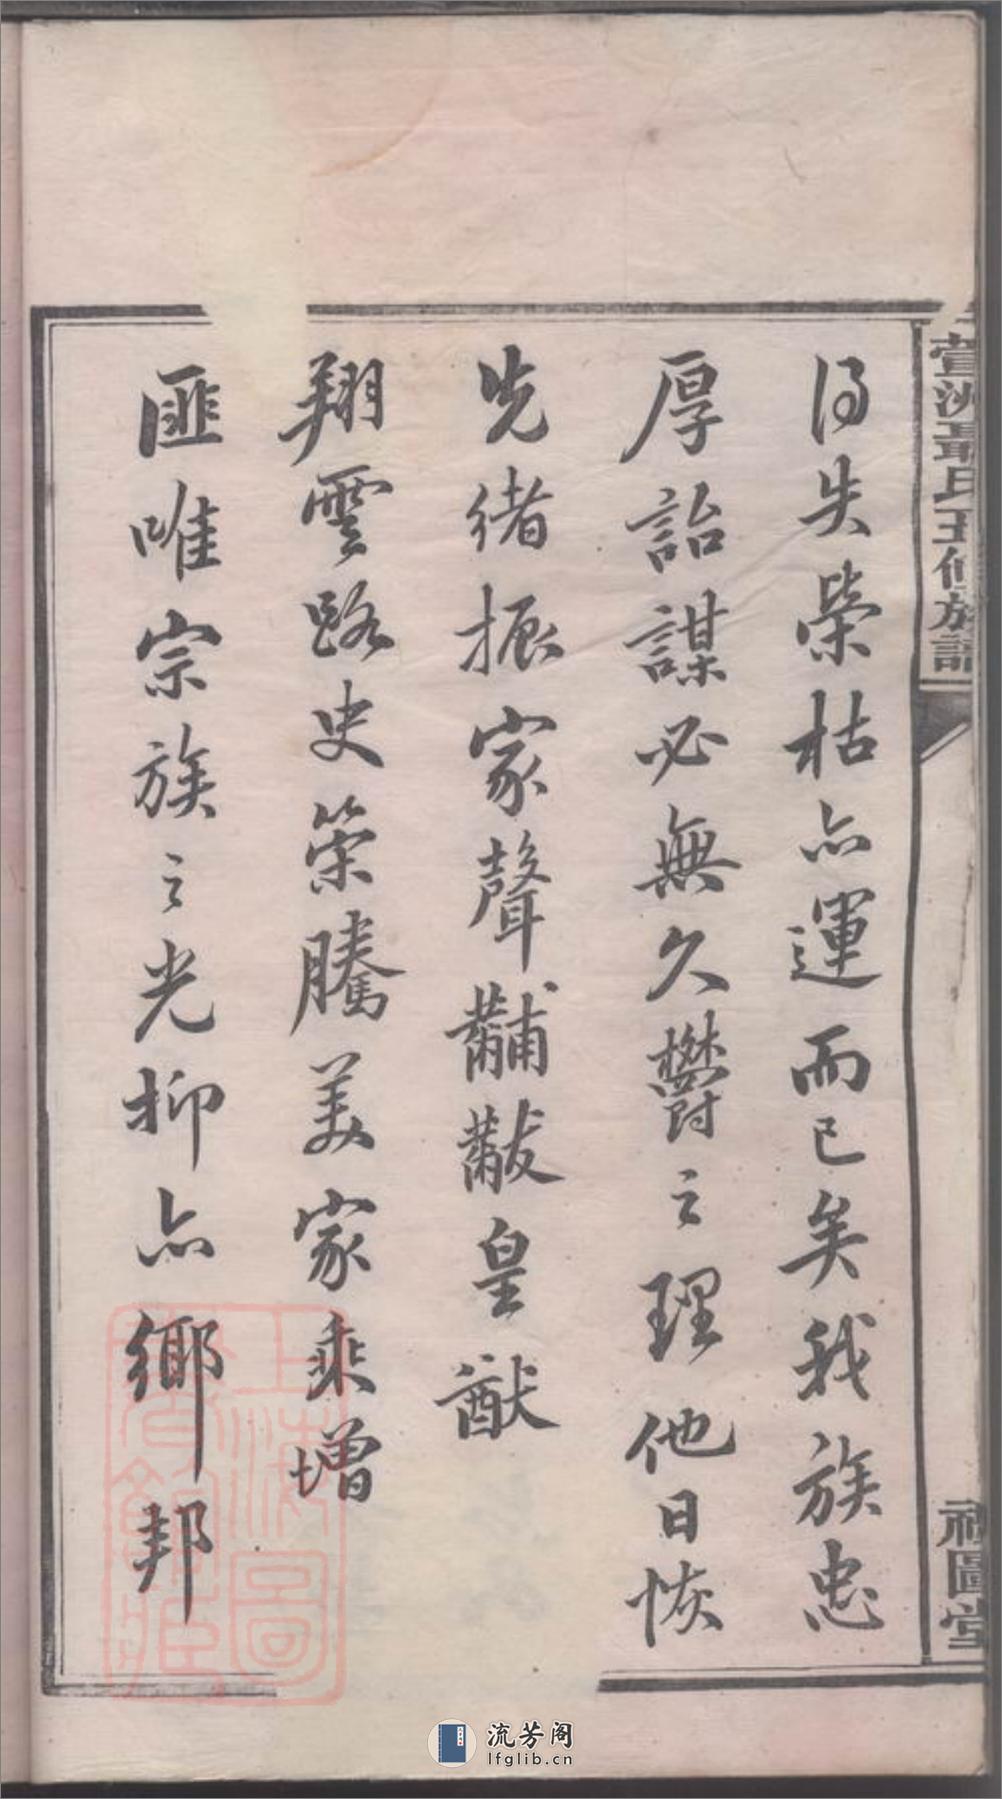 萱洲聶氏五修族譜
得失榮枯亦運而已矣我族忠
厚詒謀必無久欝之理他日恢
先緒振家聲黼黻皇猷
翔雲路史策騰美家乘增
匪唯宗族之光抑亦鄉邦
圖堂
上海圖
書館藏
流芳阁
lfglib.cn